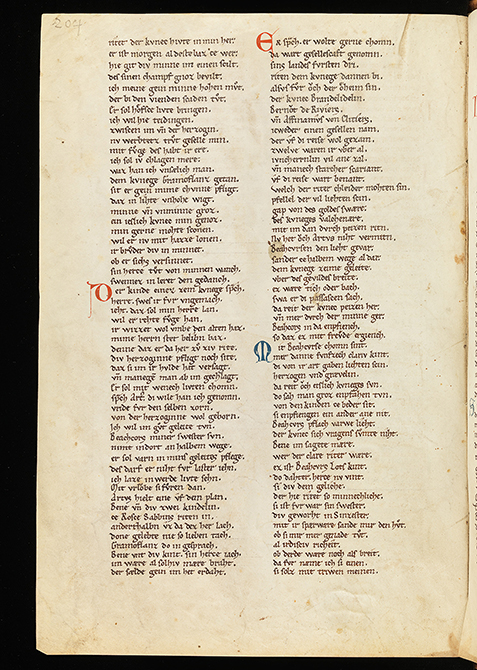 204
ritet der kvnec hivte in min her.
er ist morgen al deste baz ze wer.
hie git div minne im einen scilt.
des sinen champf gnoz bevilt.
ich meine gein minne hohen mvt.
der bi den vienden scaden tvt.
er sol hofsce livte bringen.
ich wil hie teidingen.
zwiscen im vn der herzogin.
nv werbetz trvt geselle min.
mit fvge des habt ir ere.
ich sol iv chlagen mere.
waz han ich vnsælich man.
dem kvnege Gramoflanz getan.
sit er gein mime chvnne pfliget.
daz in lihte vnhohe wiget.
minne vn vnminne groz.
ein ieslich kvnec min genoz.
min gerne mohte sconen.
wil er nv mit hazze lonen.
ir brvder div in minnet.
ob er sich versinnet.
sin herze tvt von minnen wanch.
swenn ez in leret den gedanch.
Der kinde einez zem kvnege sprach.
herre. swes ir fvr vngemach.
ieht. daz sol min herre lan.
wil er rehte fvge han.
ir wizzet wol vmbe den alten haz.
mime herrn ist beliben baz.
denne daz er da her zv ziv rite.
div herzoginne pfliget noch site.
daz si im ir hvlde hat versagt.
vn manegem man ab im gechlagt.
er sol mit wench livten chomn.
sprach Artus die wile han ich genomn.
vride fvr den selben zorn.
von der herzoginne wol geborn.
ich wil im gvt geleite tvn.
Beachors miner swester svn.
nimt in dort an halbem wege.
er sol varn in mins geleites pflege.
des darf er niht fvr laster iehn.
ich laze in werde livte sehn.
Mit vrlobe si fvren dan.
Artvs hielt eine vf dem plan.
Bene vn div zwei kindelin.
ze Rosce Sabbins riten in.
anderthalbn vz da daz her lach.
done gelebte nie so lieben tach.
Gramoflanz do in gesprach.
Bene vnt div kint. sin herze iach.
im wære al solhiv mære braht.
der sælde gein im het erdaht.
Er sprach. er wolte gerne chomn.
da wart gesellescaft genomn.
sins landes fvrsten dri.
riten dem kvnege dannen bi.
alsvs fvr ovch der oheim sin.
der kvnec Brandelidelin.
Bernovt de Riviers.
vn Affinamvs von Clitiers.
ietweder einen gesellen nam.
der vf di reise wol gezam.
zwelve waren ir vber al.
ivncherrnlin vil ane zal.
vn manech starcher scariant.
vf di reise wart benant.
welch der ritter chleider mohten sin.
pfellel der vil liehten scin.
gap von des goldes swære.
des kvneges valchenære.
mit im dan dvrch peizen riten.
nv het ovch Artvs niht vermiten.
Beahcvrsen den lieht gevar.
sander ze halbem wege al dar.
dem kvnege zeime geleite.
vber des gevildes breite.
ez wære tich oder bach.
swa er di passascen sach.
da reit der kvnec peizen her.
vn mer dvrch der minne ger.
Beahcors in da enpfiench.
so daz ez mit frevde ergiench.
Mit Beahcvrse chomn sint.
mer danne fvnfzech clariv kint.
di von ir art gaben liehten scin.
herzogen vnd grævelin.
da reit ovch etslich kvneges svn.
do sah man groz enpfahen tvn.
von den kinden ze beder sit.
si enpfiengen ein ander ane nit.
Beahcvrs pflach varwe lieht.
der kvnec sich vragens svmte niht.
Bene im sagete mære.
wer der clare ritter wære.
ez ist Beahcvrs Lots kint.
do dahter. herze nv vint.
si div dem geliche.
der hie ritet so minnechliche.
si ist fvr war sin swester.
div geworht in Sinzester.
mit ir sparwære sande mir den hvt.
ob si mir mer genade tvt.
al irdisciv richeit.
ob derde wære noch als breit.
da fvr næme ich si einen.
si solz mit triwen meinen.